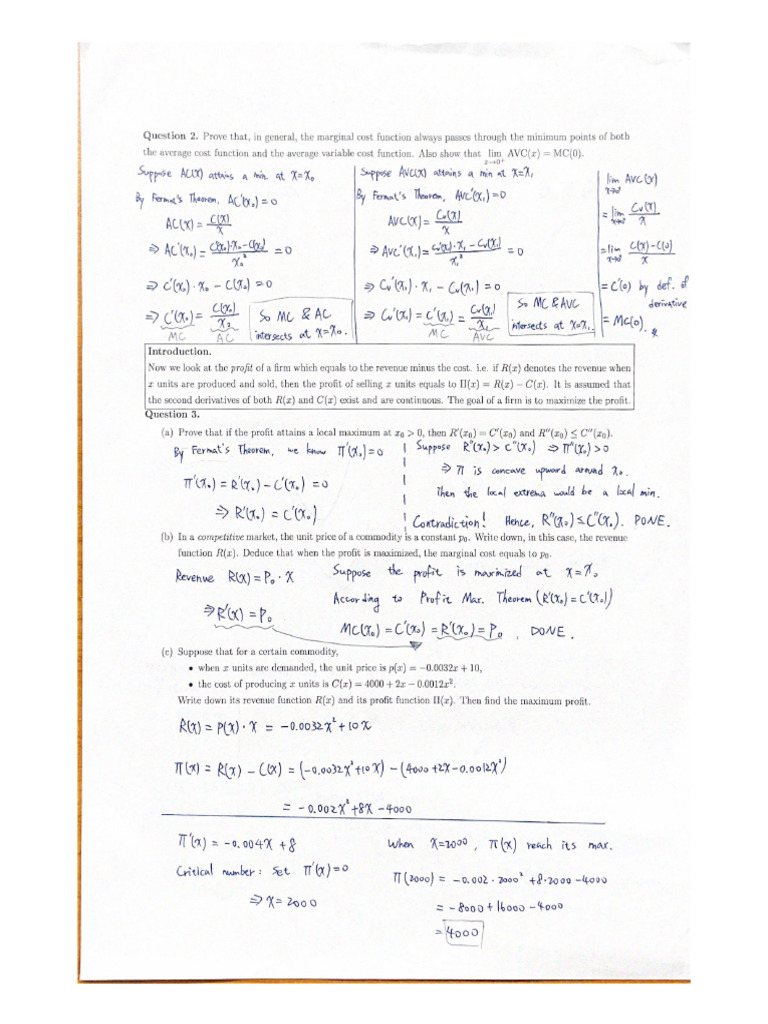 Question 2. Prove that, in general, the marginal cost function always passes through the minimum points of both
the average cost function and the average variable cost function. Also show that lim x→0⁺ AVC(x) = MC(0).
Suppose AC(x) attains a min. at x=x₀
By Fermat's Theorem, AC'(x₀)=0
AC(x) = C(x)/x
⇒ AC'(x₀) = (C'(x₀)·x₀ - C(x₀))/x₀² = 0
⇒ C'(x₀)·x₀ - C(x₀) = 0
⇒ C'(x₀) = C(x₀)/x₀
MC AC
So MC & AC
intersects at x=x₀.
Suppose AVC(x) attains a min at x=x₁
By Fermat's Theorem, AVC'(x₁)=0
AVC(x) = Cv(x)/x
⇒ AVC'(x₁) = (Cv'(x₁)·x₁ - Cv(x₁))/x₁² = 0
⇒ Cv'(x₁)·x₁ - Cv(x₁) = 0
⇒ Cv'(x₁) = C'(x₁) = Cv(x₁)/x₁
MC AVC
So MC & AVC
intersects at x=x₁
lim x→0⁺ AVC(x)
= lim x→0⁺ Cv(x)/x
= lim x→0⁺ (C(x)-C(0))/x
= C'(0) by def. of
derivative
= MC(0).
Introduction.
Now we look at the profit of a firm which equals to the revenue minus the cost. i.e. if R(x) denotes the revenue when
x units are produced and sold, then the profit of selling x units equals to Π(x) = R(x) − C(x). It is assumed that
the second derivatives of both R(x) and C(x) exist and are continuous. The goal of a firm is to maximize the profit.
Question 3.
(a) Prove that if the profit attains a local maximum at x₀ > 0, then R′(x₀) = C′(x₀) and R″(x₀) ≤ C″(x₀).
By Fermat's Theorem, we know π'(x₀)=0
π'(x₀) = R'(x₀) - C'(x₀) = 0
⇒ R'(x₀) = C'(x₀)
Suppose R''(x₀) > C''(x₀) ⇒ π''(x₀) > 0
⇒ π is concave upward around x₀.
Then the local extrema would be a local min.
Contradiction! Hence, R''(x₀) ≤ C''(x₀). DONE.
(b) In a competitive market, the unit price of a commodity is a constant p₀. Write down, in this case, the revenue
function R(x). Deduce that when the profit is maximized, the marginal cost equals to p₀.
Revenue R(x) = P₀·x
⇒ R'(x) = P₀
Suppose the profit is maximized at x=x₀
According to Profit Max. Theorem (R'(x₀) = C'(x₀))
MC(x₀) = C'(x₀) = R'(x₀) = P₀, DONE.
(c) Suppose that for a certain commodity,
• when x units are demanded, the unit price is p(x) = −0.0032x + 10,
• the cost of producing x units is C(x) = 4000 + 2x − 0.0012x².
Write down its revenue function R(x) and its profit function Π(x). Then find the maximum profit.
R(x) = P(x)·x = -0.0032x²+10x
π(x) = R(x) - C(x) = (-0.0032x²+10x) - (4000+2x-0.0012x²)
= -0.002x²+8x-4000
π'(x) = -0.004x+8
Critical number: Set π'(x)=0
⇒ x=2000
When x=2000, π(x) reach its max.
π(2000) = -0.002·2000²+8·2000-4000
= -8000+16000-4000
= 4000